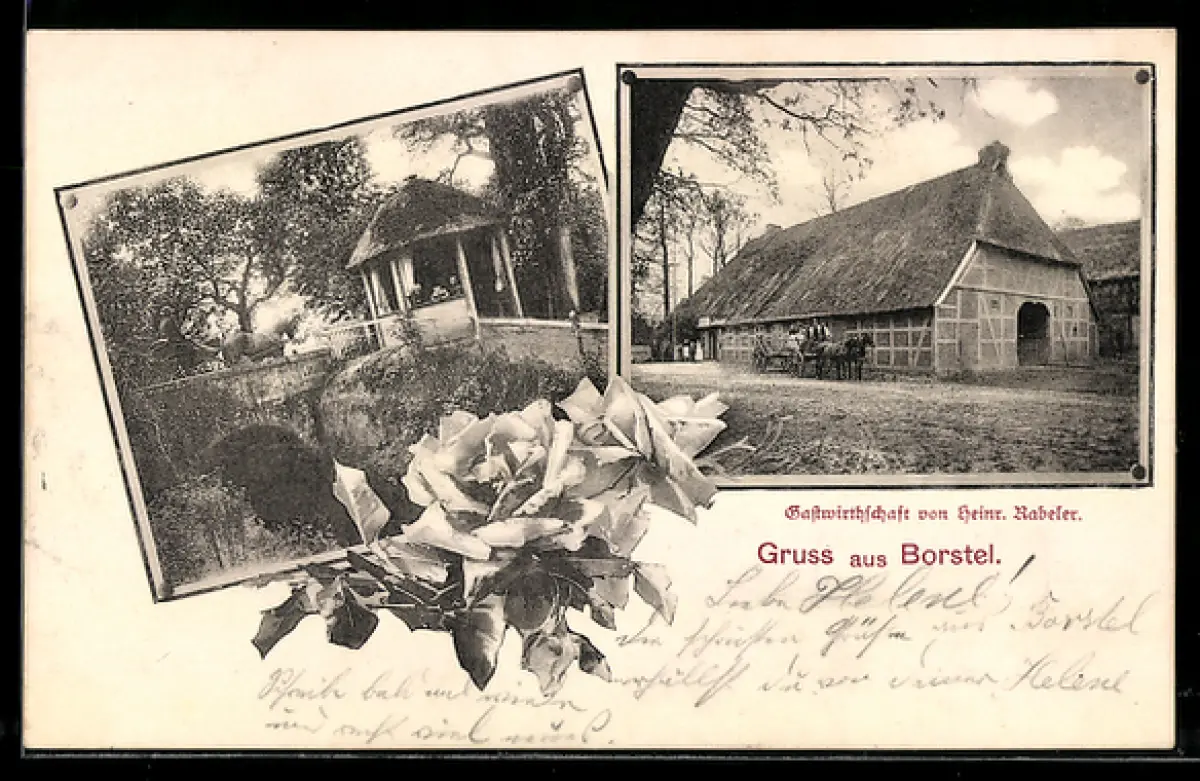 Gastwirthschaft von Heinr. Rabeler.
Gruss aus Borstel.
Liebe Helene!
Die schönsten Grüße aus Borstel
erhällst du von deiner Helene
Schreib bald mal wieder
und recht viel neues.